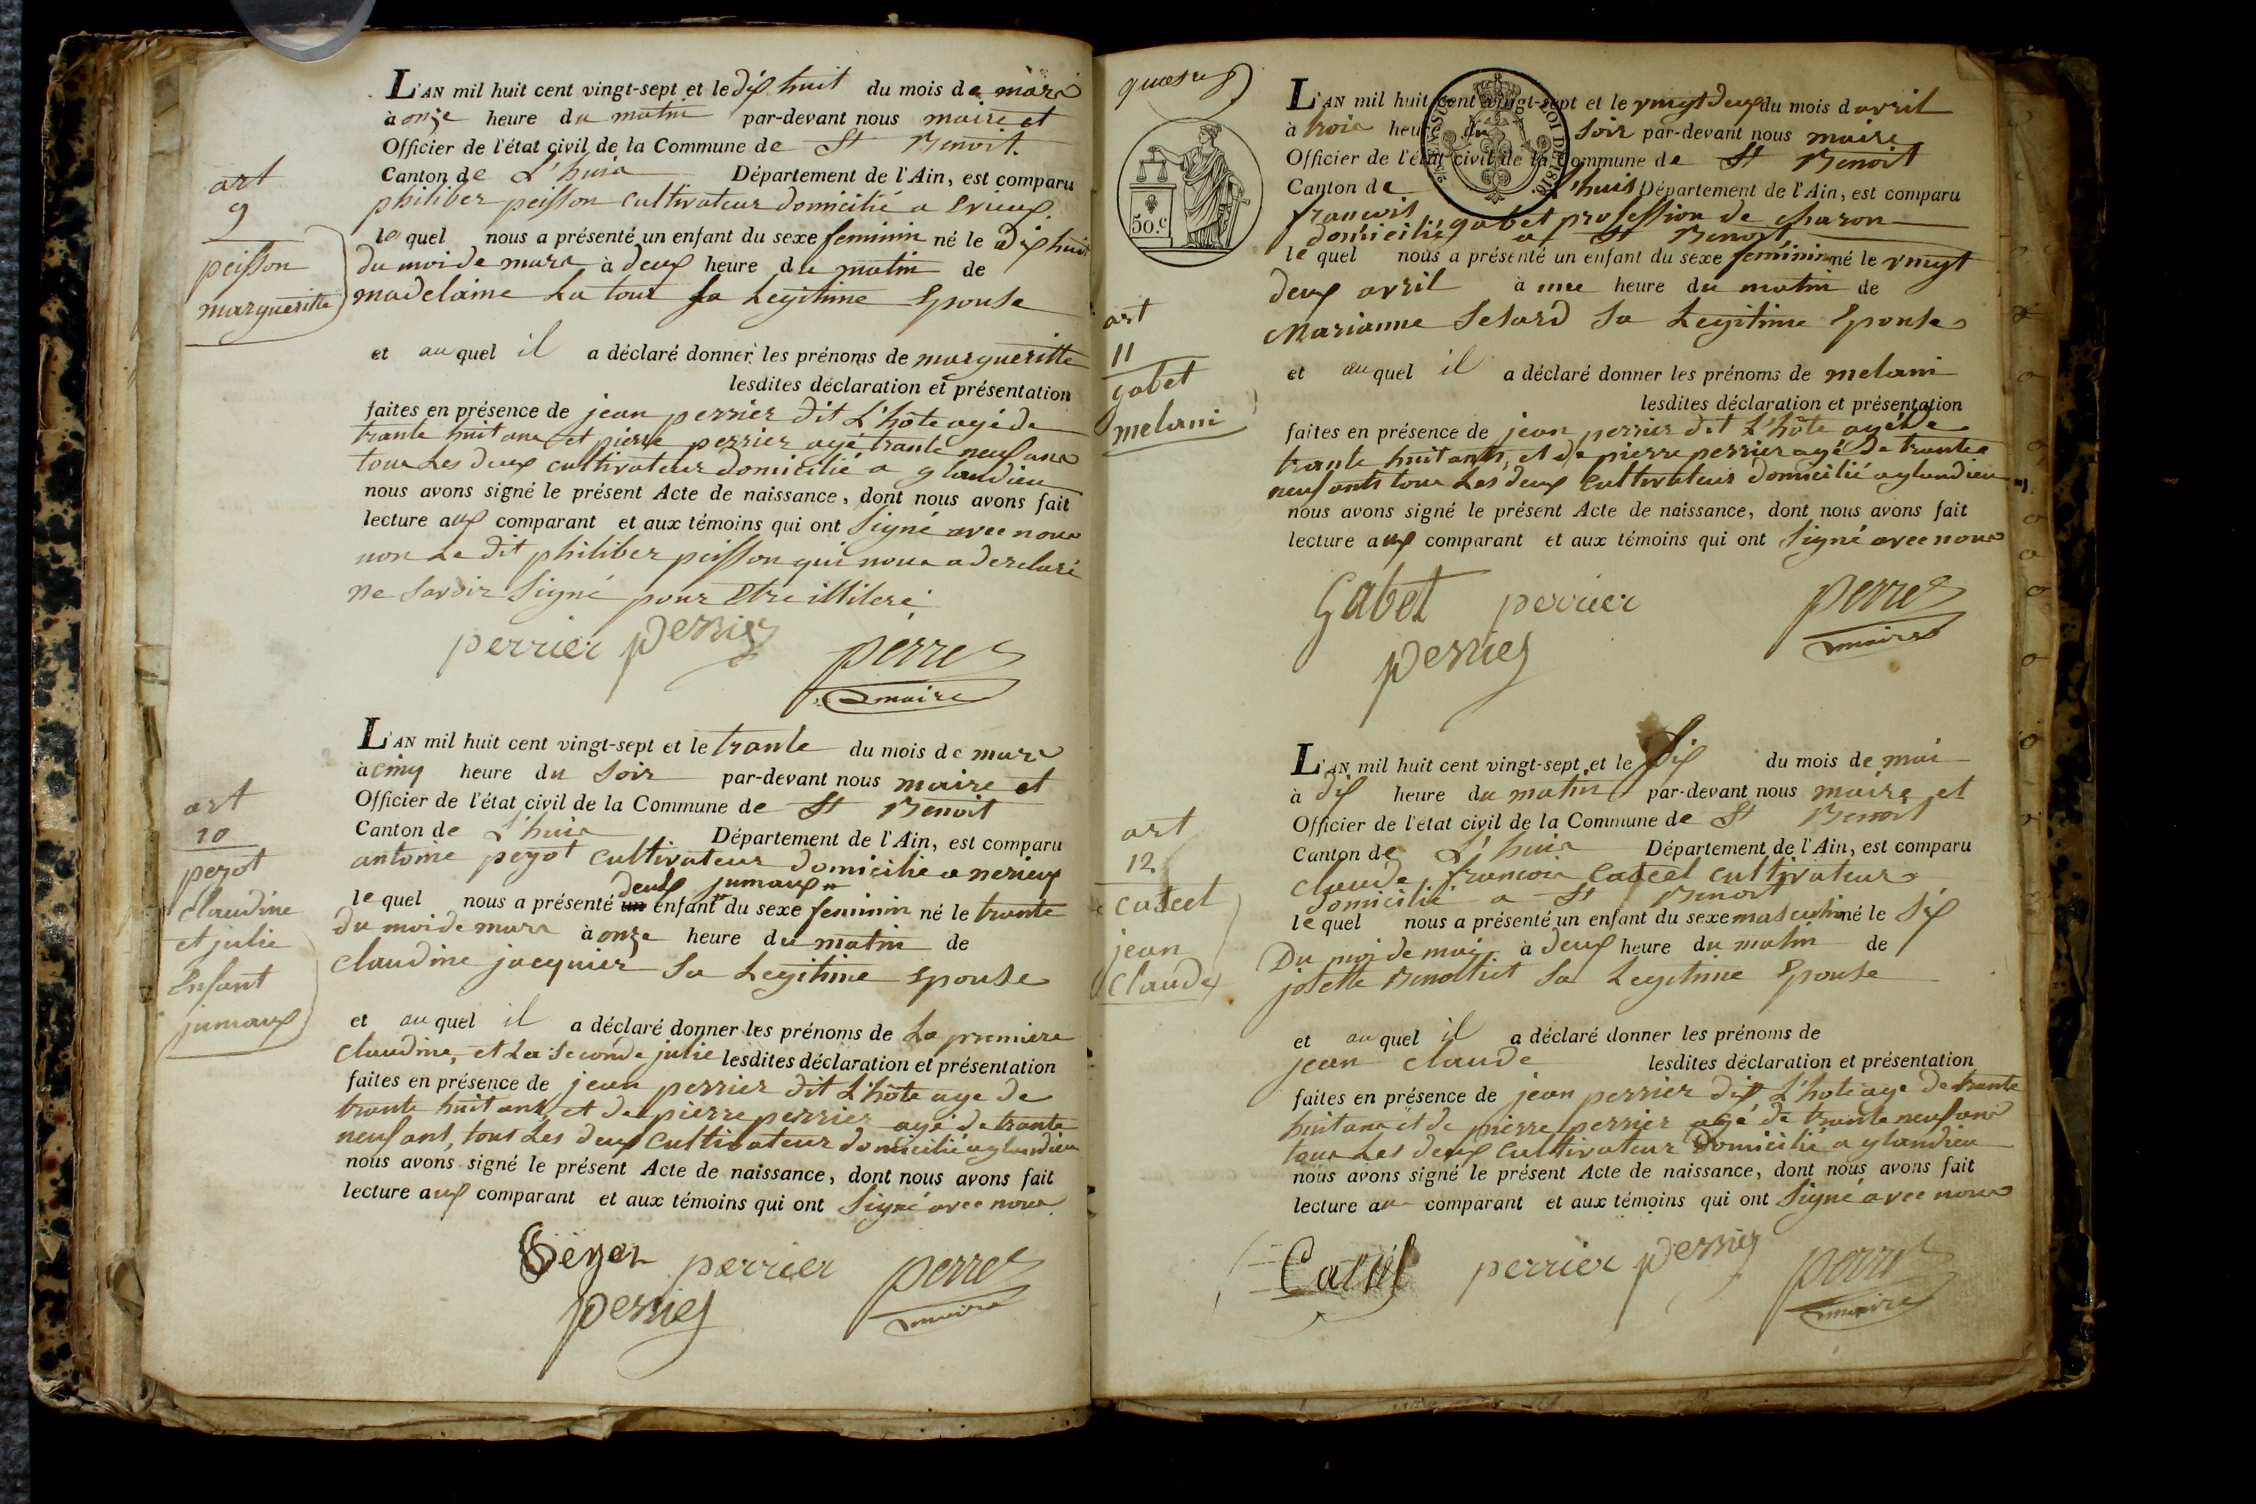 art
9
peisson
margueritte
L'AN mil huit cent vingt-sept et le dix huit du mois de mars
à onze heure du matin par-devant nous maire et
Officier de l'état civil de la Commune de St Benoit
Canton de L'huis Département de l'Ain, est comparu
philiber peisson cultivateur domicilié a
le quel nous a présenté un enfant du sexe feminin né le dix huit
du moi de mars à deux heure du matin de
madelaine La tour sa Legitime Epouse
et auquel il a déclaré donner les prénoms de margueritte
lesdites déclaration et présentation
faites en présence de jean perrier dit L'hôte agé de
trante huit ans et pierre perrier agé trante neuf ans
tous Les deux cultivateur domicilié a glandieu
nous avons signé le présent Acte de naissance, dont nous avons fait
lecture aux comparant et aux témoins qui ont signé avec nous
non Le dit philiber peisson qui nous a declaré
ne savoir signé pour Etre illiteré
perrier perrier
perret
maire
art
10
peyot
claudine
et julie
Enfant
jumaux
L'AN mil huit cent vingt-sept et le trante du mois de mars
à cinq heure du soir par-devant nous maire et
Officier de l'état civil de la Commune de St Benoit
Canton de L'huis Département de l'Ain, est comparu
antoine peyot cultivateur domicilié a
deux jumaux
le quel nous a présenté un enfant du sexe feminin né le trante
du moi de mars à onze heure du matin de
claudine jacquier sa Legitime Epouse
et auquel il a déclaré donner les prénoms de La premiere
claudine, et La seconde julie lesdites déclaration et présentation
faites en présence de jean perrier dit L'hôte age de
trante huit ans, et de pierre perrier agé de trante
neuf ans, tous Les deux cultivateur domicilié a glandieu
nous avons signé le présent Acte de naissance, dont nous avons fait
lecture aux comparant et aux témoins qui ont signé avec nous
perrier perret
perrier maire
50.c
art
11
gabet
melani
L'AN mil huit cent vingt-sept et le vingt deux du mois d avril
à trois heure du soir par-devant nous maire
Officier de l'état civil de la Commune de St Benoit
Canton de L'huis Département de l'Ain, est comparu
francois gabet profession de charon
domicilié a St Benoit
le quel nous a présenté un enfant du sexe feminin né le vingt
deux avril à une heure du matin de
Marianne sa Legitime Epouse
et auquel il a déclaré donner les prénoms de melani
lesdites déclaration et présentation
faites en présence de jean perrier dit L'hôte agé de
trante huit ants, et de pierre perrier agé de trante
neuf ants tous Les deux cultivateur domicilié a glandieu
nous avons signé le présent Acte de naissance, dont nous avons fait
lecture aux comparant et aux témoins qui ont signé avec nous
Gabet perrier perret
perrier maire
art
12
jean
claude
L'AN mil huit cent vingt-sept et le dix du mois de mai
à dix heure du matin par-devant nous maire et
Officier de l'état civil de la Commune de St Benoit
Canton de L'huis Département de l'Ain, est comparu
claude francois cultivateur
domicilié a St Benoit
le quel nous a présenté un enfant du sexe masculin né le dix
Du moi de mai à deux heure du matin de
josette sa Legitime Epouse
et auquel il a déclaré donner les prénoms de
jean claude lesdites déclaration et présentation
faites en présence de jean perrier dit L'hote age de trante
huit ans et de pierre perrier agé de trante neuf ans
tous Les deux cultivateur Domicilié a glandieu
nous avons signé le présent Acte de naissance, dont nous avons fait
lecture au comparant et aux témoins qui ont signé avec nous
perrier perrier perret
maire